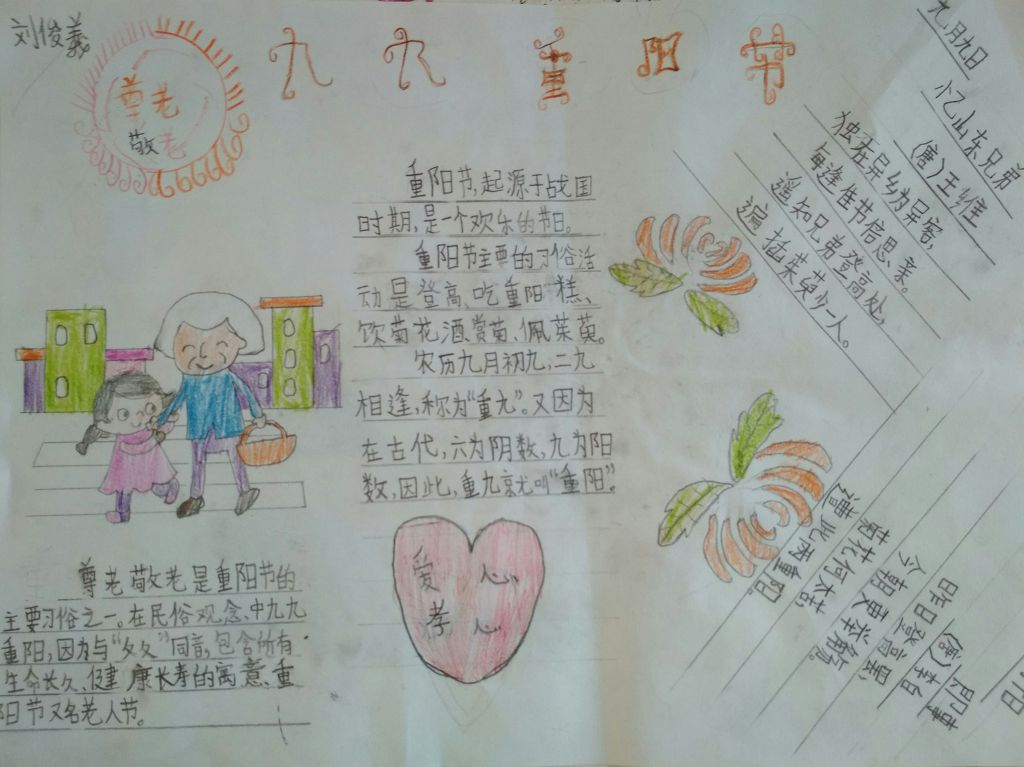 刘俊義
尊老
敬老
九九重阳节
重阳节,起源于战国
时期,是一个欢乐的节日。
重阳节主要的习俗活
动是登高、吃重阳糕、
饮菊花酒、赏菊、佩茱萸。
农历九月初九,二九
相逢,称为“重九”。又因为
在古代,六为阴数,九为阳
数,因此,重九就叫“重阳”。
爱心
孝心
尊老敬老是重阳节的
主要习俗之一。在民俗观念中九九
重阳,因为与“久久”同音,包含所有
生命长久、健康长寿的寓意,重
阳节又名老人节。
九月九日
忆山东兄弟
(唐)王维
独在异乡为异客,
每逢佳节倍思亲。
遥知兄弟登高处,
遍插茱萸少一人。
即事
(唐)李白
昨日登高罢,
今朝更举觞。
菊花何太苦,
遭此两重阳。